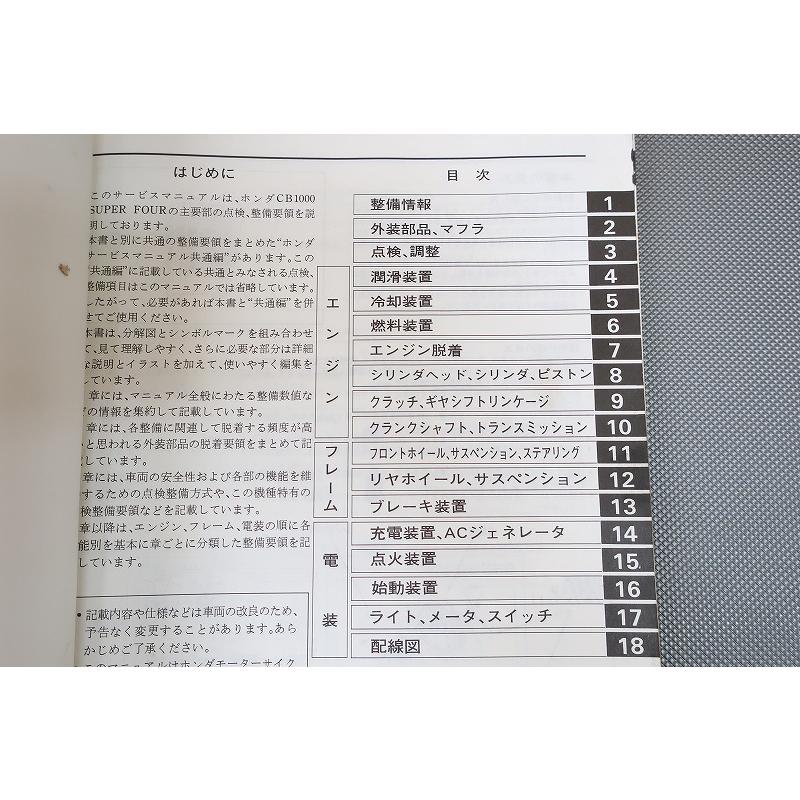 はじめに
このサービスマニュアルは、ホンダCB1000
SUPER FOURの主要部の点検、整備要領を説
明しております。
本書と別に共通の整備要領をまとめた“ホンダ
サービスマニュアル共通編”があります。この
“共通編”に記載している共通とみなされる点検、
整備項目はこのマニュアルでは省略しています。
したがって、必要があれば本書と“共通編”を併
せてご使用ください。
本書は、分解図とシンボルマークを組み合わせ
て、見て理解しやすく、さらに必要な部分は詳細
な説明とイラストを加えて、使いやすく編集を
しています。
章には、マニュアル全般にわたる整備数値な
どの情報を集約して記載しています。
章には、各整備に関連して脱着する頻度が高
いと思われる外装部品の脱着要領をまとめて記
載しています。
章には、車両の安全性および各部の機能を維
するための点検整備方式や、この機種特有の
検整備要領などを記載しています。
章以降は、エンジン、フレーム、電装の順に各
能別を基本に章ごとに分類した整備要領を記
しています。
• 記載内容や仕様などは車両の改良のため、
予告なく変更することがあります。あら
かじめご了承ください。
このマニュアルはホンダモーターサイク
目 次
整備情報 1
外装部品、マフラ 2
点検、調整 3
エンジン
潤滑装置 4
冷却装置 5
燃料装置 6
エンジン脱着 7
シリンダヘッド、シリンダ、ピストン 8
クラッチ、ギヤシフトリンケージ 9
クランクシャフト、トランスミッション 10
フレーム
フロントホイール、サスペンション、ステアリング 11
リヤホイール、サスペンション 12
ブレーキ装置 13
電装
充電装置、ACジェネレータ 14
点火装置 15
始動装置 16
ライト、メータ、スイッチ 17
配線図 18